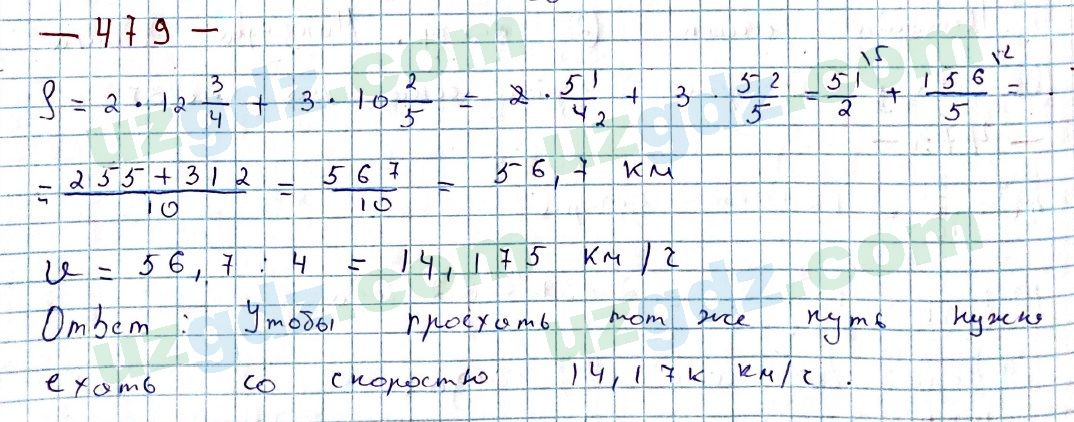 — 479 —
S = 2 · 12 3/4 + 3 · 10 2/5 = 2 · 51/4 2 + 3 · 52/5 = 51/2 \5 + 156/5 \2 =
= 255+312/10 = 567/10 = 56,7 км
v = 56,7 : 4 = 14,175 км/ч
Ответ: Чтобы проехать тот же путь нужно
ехать со скоростью 14,17к км/ч.
uzgdz.com
uzgdz.com
uzgdz.com
uzgdz.com